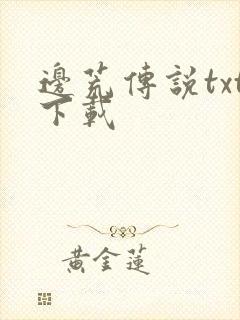 邊荒傳說txt
下載
黃金蓮